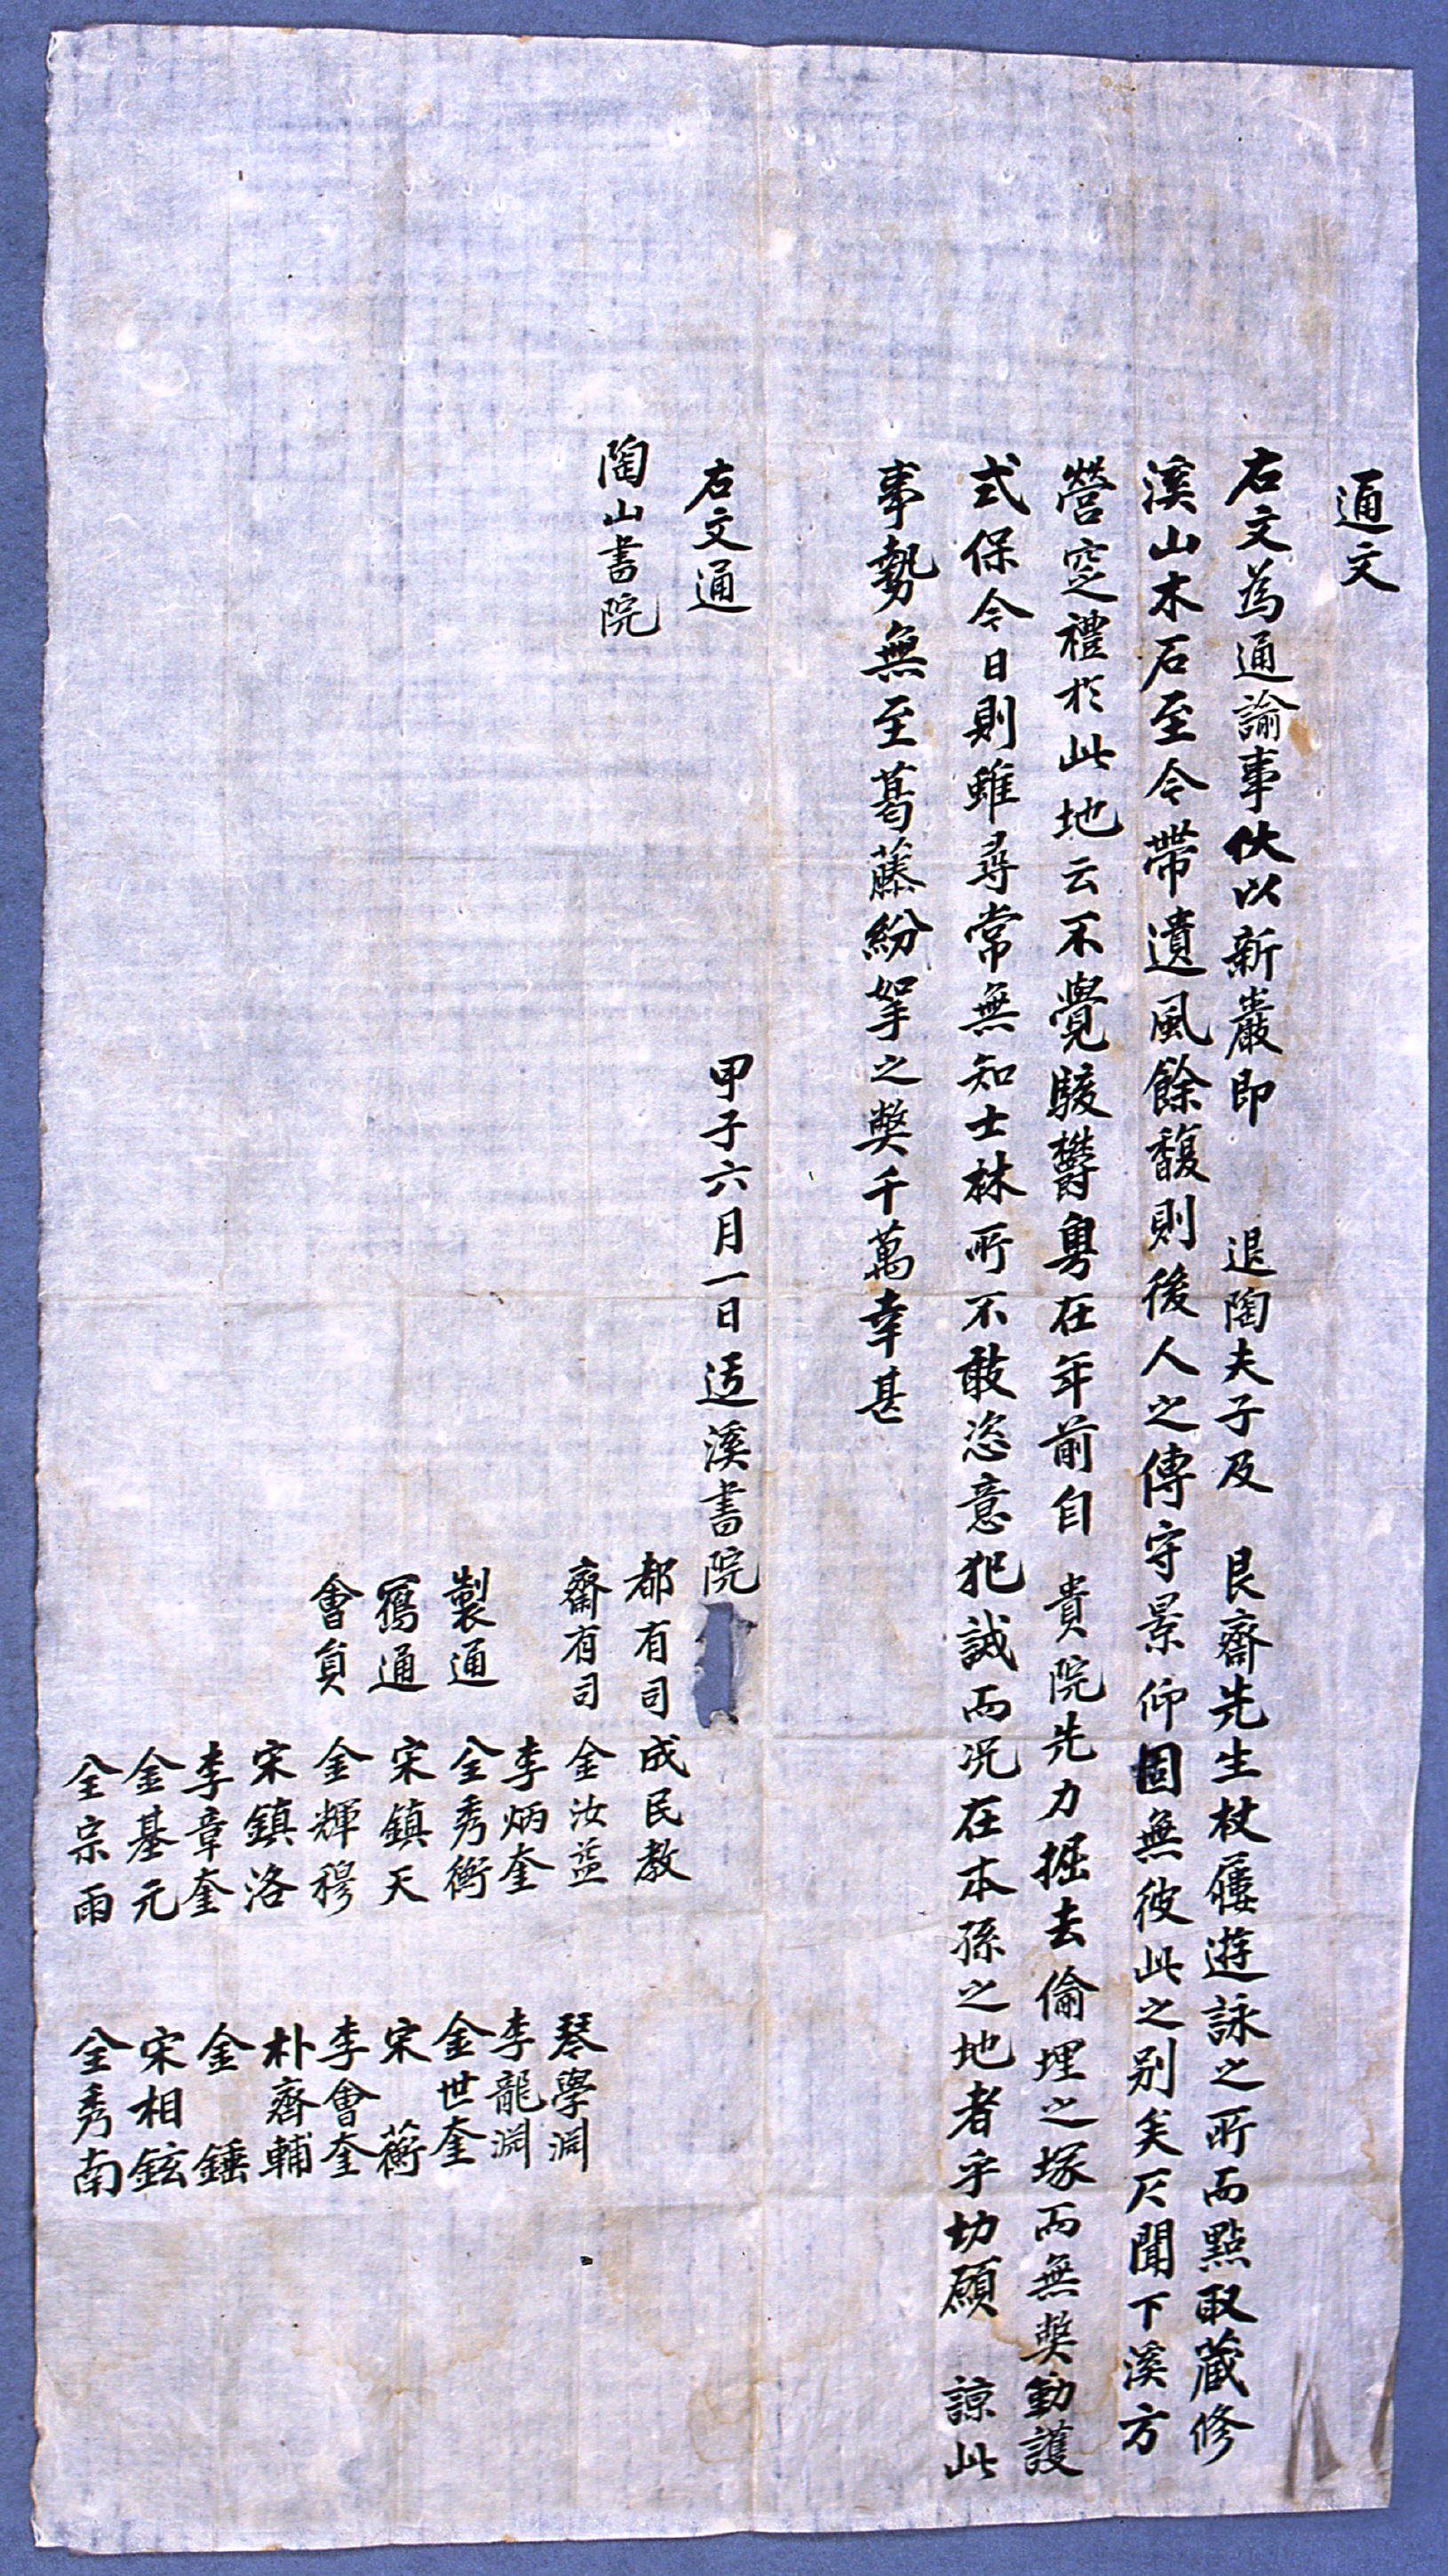 通文
右文爲通諭事伏以新巖即 退陶夫子及 艮齋先生杖屨遊詠之所而點取藏修
溪山木石至今帶遺風餘馥則後人之傳守景仰固無彼此之別矣仄聞下溪方
營窆禮於此地云不覺駭欝粤在年前自 貴院先力掘去偸埋之塚而無獘勤護
式保今日則雖尋常無知士林所不敢恣意犯誠而况在本孫之地者乎切願 諒此
事勢無至葛藤紛挐之獘千萬幸甚
右文通
陶山書院
甲子六月一日迃溪書院
都有司 成民教
齋有司 金汝益 琴學淵
李炳奎 李龍淵
製通 全秀衡 金世奎
寫通 宋鎮天 宋 蘅
會員 金輝穆 李會奎
宋鎮洛 朴齊輔
李章奎 金 錘
金基元 宋相鉉
全宗雨 全秀南